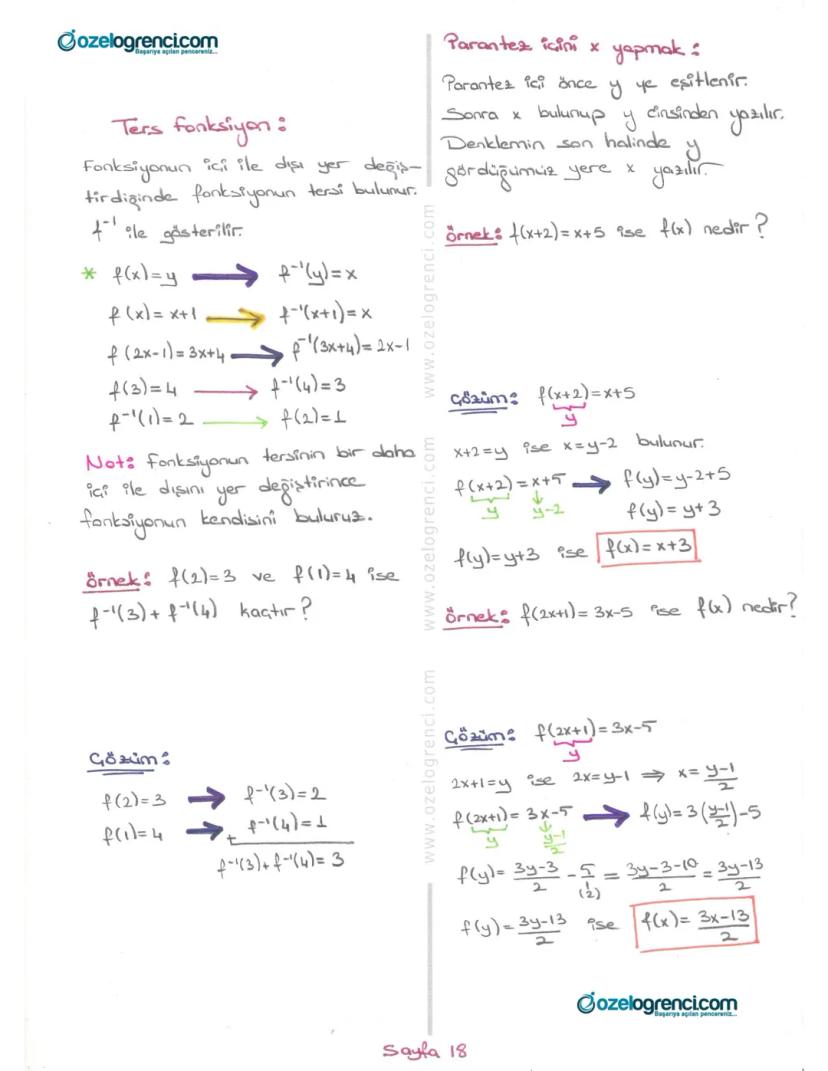 ozelogrenci.com
Başarıya açılan pencereniz...
Ters fonksiyon:
Fonksiyonun içi ile dışı yer değiş-
tirdiğinde fonksiyonun tersi bulunur.
f⁻¹ ile gösterilir.
* f(x)=y → f⁻¹(y)=x
f(x)=x+1 → f⁻¹(x+1)=x
f(2x-1)=3x+4 → f⁻¹(3x+4)=2x-1
f(3)=4 → f⁻¹(4)=3
f⁻¹(1)=2 → f(2)=1
Not: Fonksiyonun tersinin bir daha
içi ile dışını yer değiştirince
fonksiyonun kendisini buluruz.
Örnek: f(2)=3 ve f(1)=4 ise
f⁻¹(3)+f⁻¹(4) kaçtır?
Çözüm:
f(2)=3 → f⁻¹(3)=2
f(1)=4 → + f⁻¹(4)=1
f⁻¹(3)+f⁻¹(4)=3
www.ozelogrenci.com
www.ozelogrenci.com
www.ozelogrenci.com
Parantez içini x yapmak:
Parantez içi önce y ye eşitlenir.
Sonra x bulunup y cinsinden yazılır.
Denklemin son halinde y
gördüğümüz yere x yazılır.
Örnek: f(x+2)=x+5 ise f(x) nedir?
Çözüm: f(x+2)=x+5
y
x+2=y ise x=y-2 bulunur.
f(x+2)=x+5 → f(y)=y-2+5
y y-2 f(y)=y+3
f(y)=y+3 ise f(x)=x+3
Örnek: f(2x+1)=3x-5 ise f(x) nedir?
Çözüm: f(2x+1)=3x-5
y
2x+1=y ise 2x=y-1 ⇒ x=(y-1)/2
f(2x+1)=3x-5 → f(y)=3((y-1)/2)-5
y (y-1)/2
f(y)=(3y-3)/2-5/1=(3y-3-10)/2=(3y-13)/2
(2)
f(y)=(3y-13)/2 ise f(x)=(3x-13)/2
ozelogrenci.com
Başarıya açılan pencereniz...
Sayfa 18